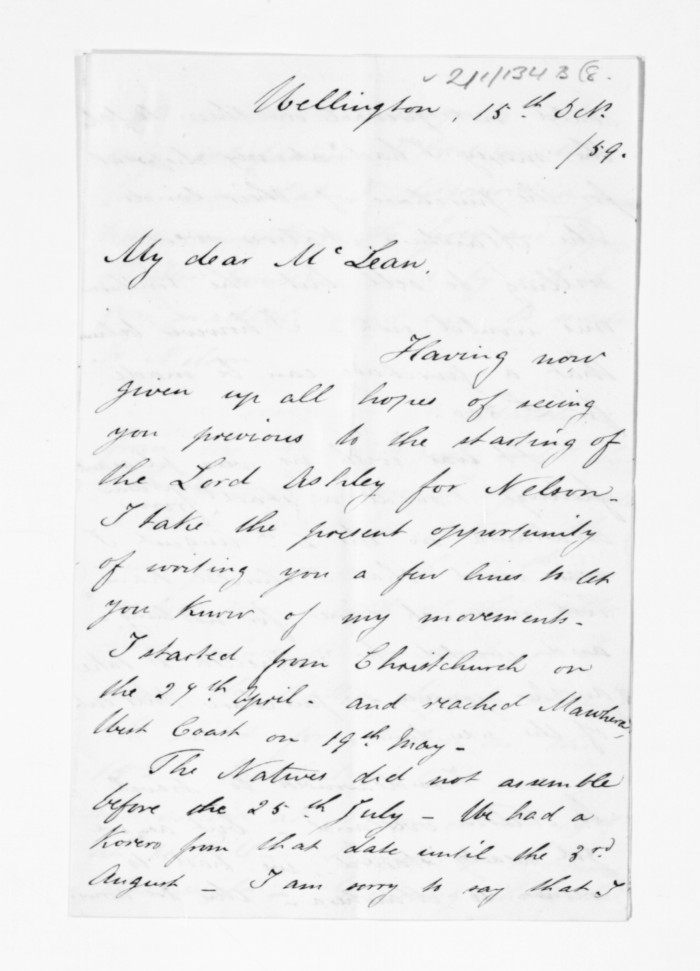 2/1/134 B
Wellington, 15th Octr.
/59.
My dear Mc Lean.
Having now
given up all hopes of seeing
you previous to the starting of
the Lord Ashley for Nelson -
I take the present opportunity
of writing you a few lines to let
you know of my movements -
I started from Christchurch on
the 27th April - and reached Mawhera,
West Coast on 19th May -
The Natives did not assemble
before the 25th July - We had a
Korero from that date until the 3rd
August - I am sorry to say that I